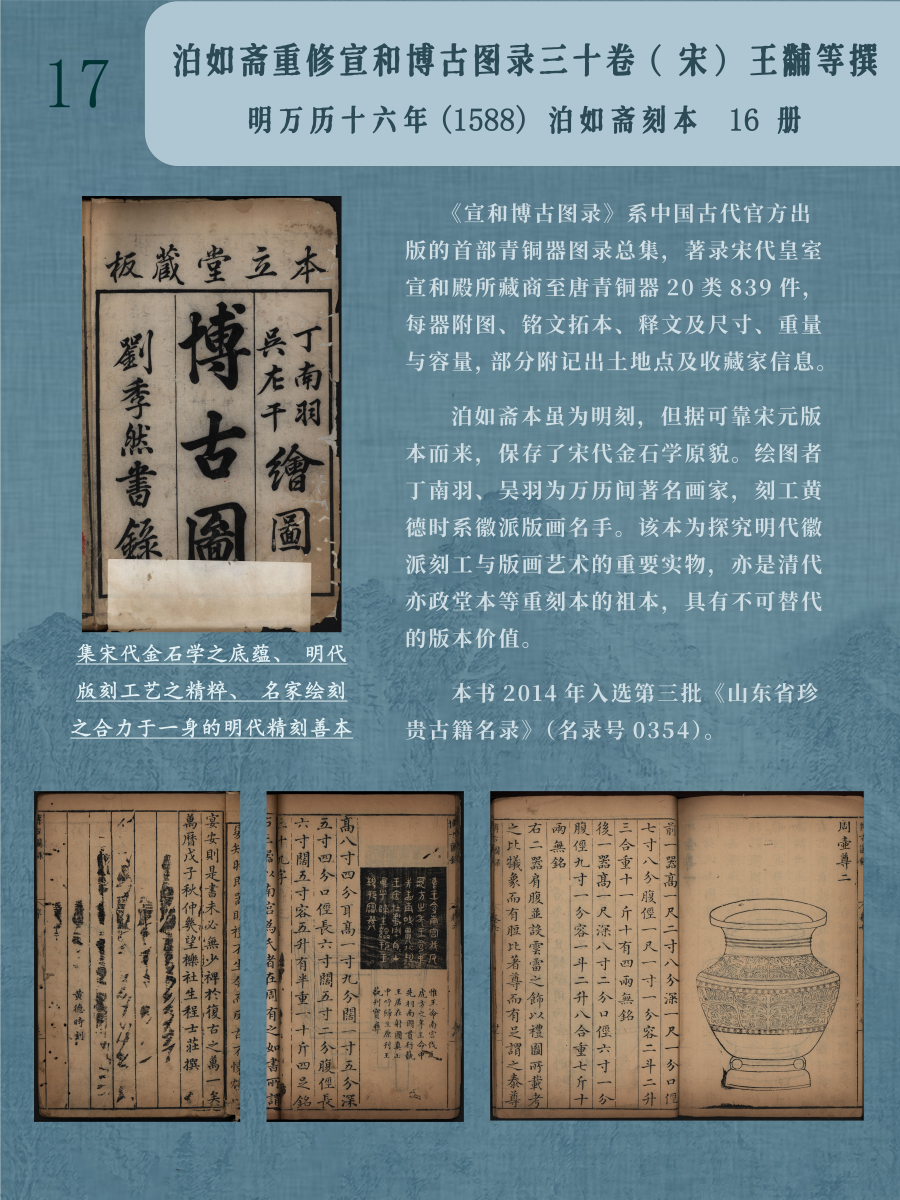 17
泊如斋重修宣和博古图录三十卷（宋）王黼等撰
明万历十六年(1588) 泊如斋刻本 16 册
本立堂藏板
丁南羽
吳左干
繪圖
博古圖
劉季然書錄
集宋代金石学之底蕴、 明代
版刻工艺之精粹、 名家绘刻
之合力于一身的明代精刻善本
《宣和博古图录》系中国古代官方出
版的首部青铜器图录总集，著录宋代皇室
宣和殿所藏商至唐青铜器 20 类 839 件，
每器附图、铭文拓本、释文及尺寸、重量
与容量，部分附记出土地点及收藏家信息。
泊如斋本虽为明刻，但据可靠宋元版
本而来，保存了宋代金石学原貌。绘图者
丁南羽、吴羽为万历间著名画家，刻工黄
德时系徽派版画名手。该本为探究明代徽
派刻工与版画艺术的重要实物，亦是清代
亦政堂本等重刻本的祖本，具有不可替代
的版本价值。
本书 2014 年入选第三批《山东省珍
贵古籍名录》（名录号 0354）。
宴安則是書未必無少裨於復古之萬一矣
萬曆戊子秋仲幾望櫟社生程士莊撰
黄德時刻
高八寸四分耳高一寸九分闊一寸五分深
五寸四分口徑長六寸闊五寸二分腹徑長
六寸闊五寸容五升有半重一十斤四足銘
周壺尊二
前一器高一尺二寸八分深一尺一分口徑
七寸八分腹徑一尺一寸一分容二斗二升
三合重十一斤十有四兩無銘
後一器高一尺深八寸二分口徑六寸一分
腹徑九寸一分容一斗二升八合重七斤十
兩無銘
右二器肩腹並設雲雷之飾以禮圖所載考
之比犧象而有脰比著尊而有足謂之泰尊